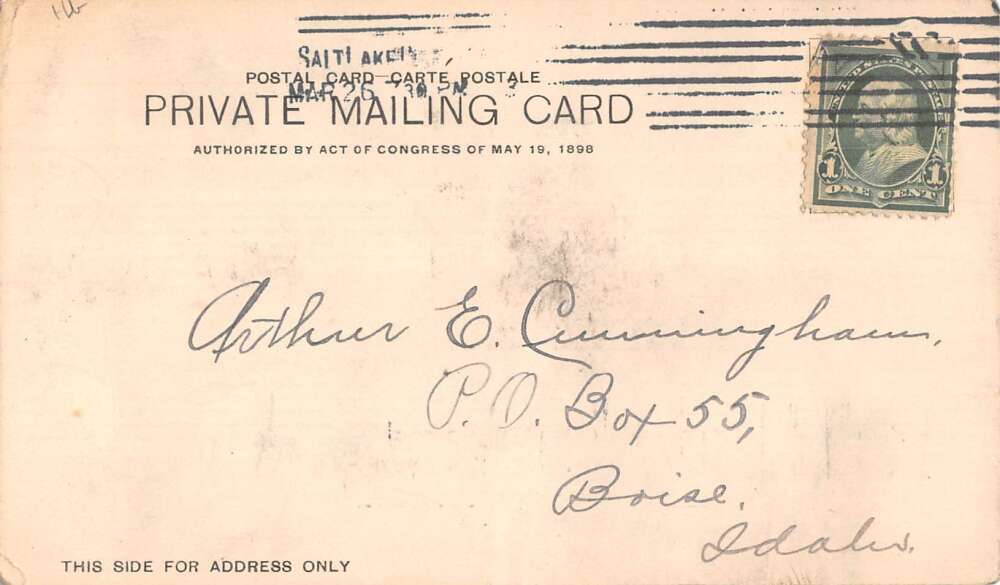 SALT LAKE
POSTAL CARD—CARTE POSTALE
MAR 26 30 PM
PRIVATE MAILING CARD
AUTHORIZED BY ACT OF CONGRESS OF MAY 19, 1898
1 1
ONE CENT
Arthur E. Cunningham,
P.O. Box 55,
Boise.
Idaho.
THIS SIDE FOR ADDRESS ONLY